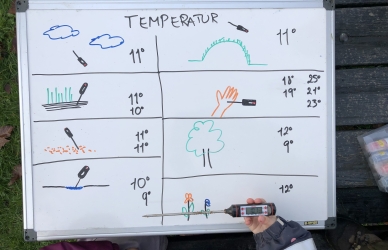 TEMPERATUR
11°
11°
11°
10°
18° 25°
19° 21°
23°
11°
11°
12°
9°
10°
9°
12°